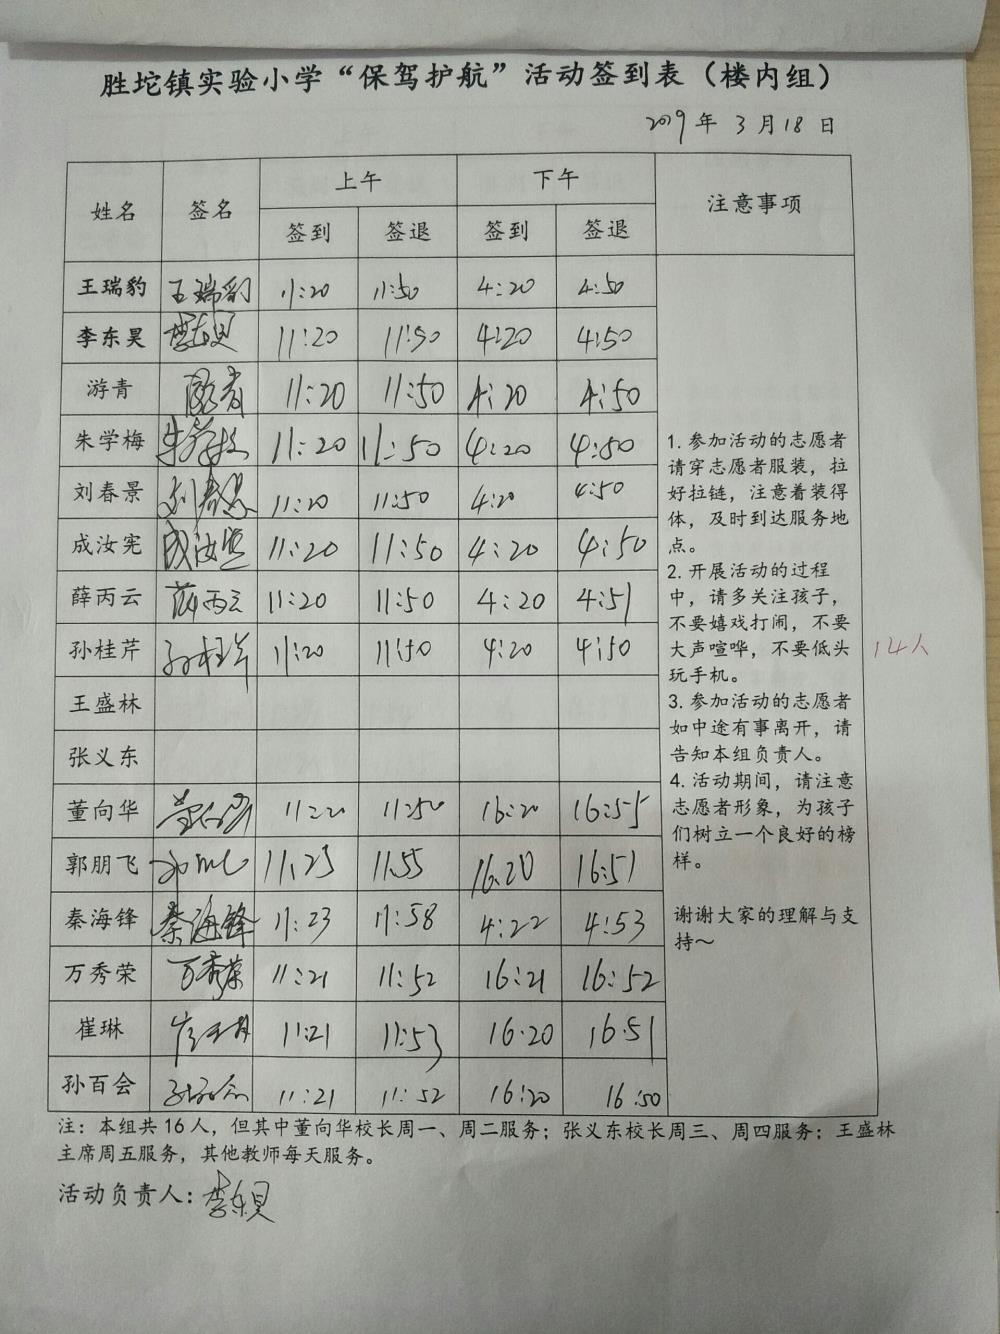 胜坨镇实验小学“保驾护航”活动签到表（楼内组）
2019年 3月18日
姓名 签名 上午 下午 注意事项
签到 签退 签到 签退
王瑞豹 王瑞豹 11:20 11:50 4:20 4:50
李东昊 李东昊 11:20 11:50 4:20 4:50
游青 11:20 11:50 4:20 4:50
朱学梅 朱学梅 11:20 11:50 4:20 4:50
刘春景 刘春景 11:20 11:50 4:20 4:50
成汝宪 成汝宪 11:20 11:50 4:20 4:50
薛丙云 薛丙云 11:20 11:50 4:20 4:51
孙桂芹 孙桂芹 11:20 11:50 4:20 4:50
王盛林
张义东
董向华 董向华 11:20 11:50 16:20 16:55
郭朋飞 11:23 11:55 16:20 16:51
秦海锋 秦海锋 11:23 11:58 4:22 4:53
万秀荣 万秀荣 11:21 11:52 16:21 16:52
崔琳 崔琳 11:21 11:53 16:20 16:51
孙百会 孙百会 11:21 11:52 16:20 16:50
1.参加活动的志愿者
请穿志愿者服装，拉
好拉链，注意着装得
体，及时到达服务地
点。
2.开展活动的过程
中，请多关注孩子，
不要嬉戏打闹，不要
大声喧哗，不要低头
玩手机。
3.参加活动的志愿者
如中途有事离开，请
告知本组负责人。
4.活动期间，请注意
志愿者形象，为孩子
们树立一个良好的榜
样。
谢谢大家的理解与支
持～
14人
注：本组共16人，但其中董向华校长周一、周二服务；张义东校长周三、周四服务；王盛林
主席周五服务，其他教师每天服务。
活动负责人：李东昊